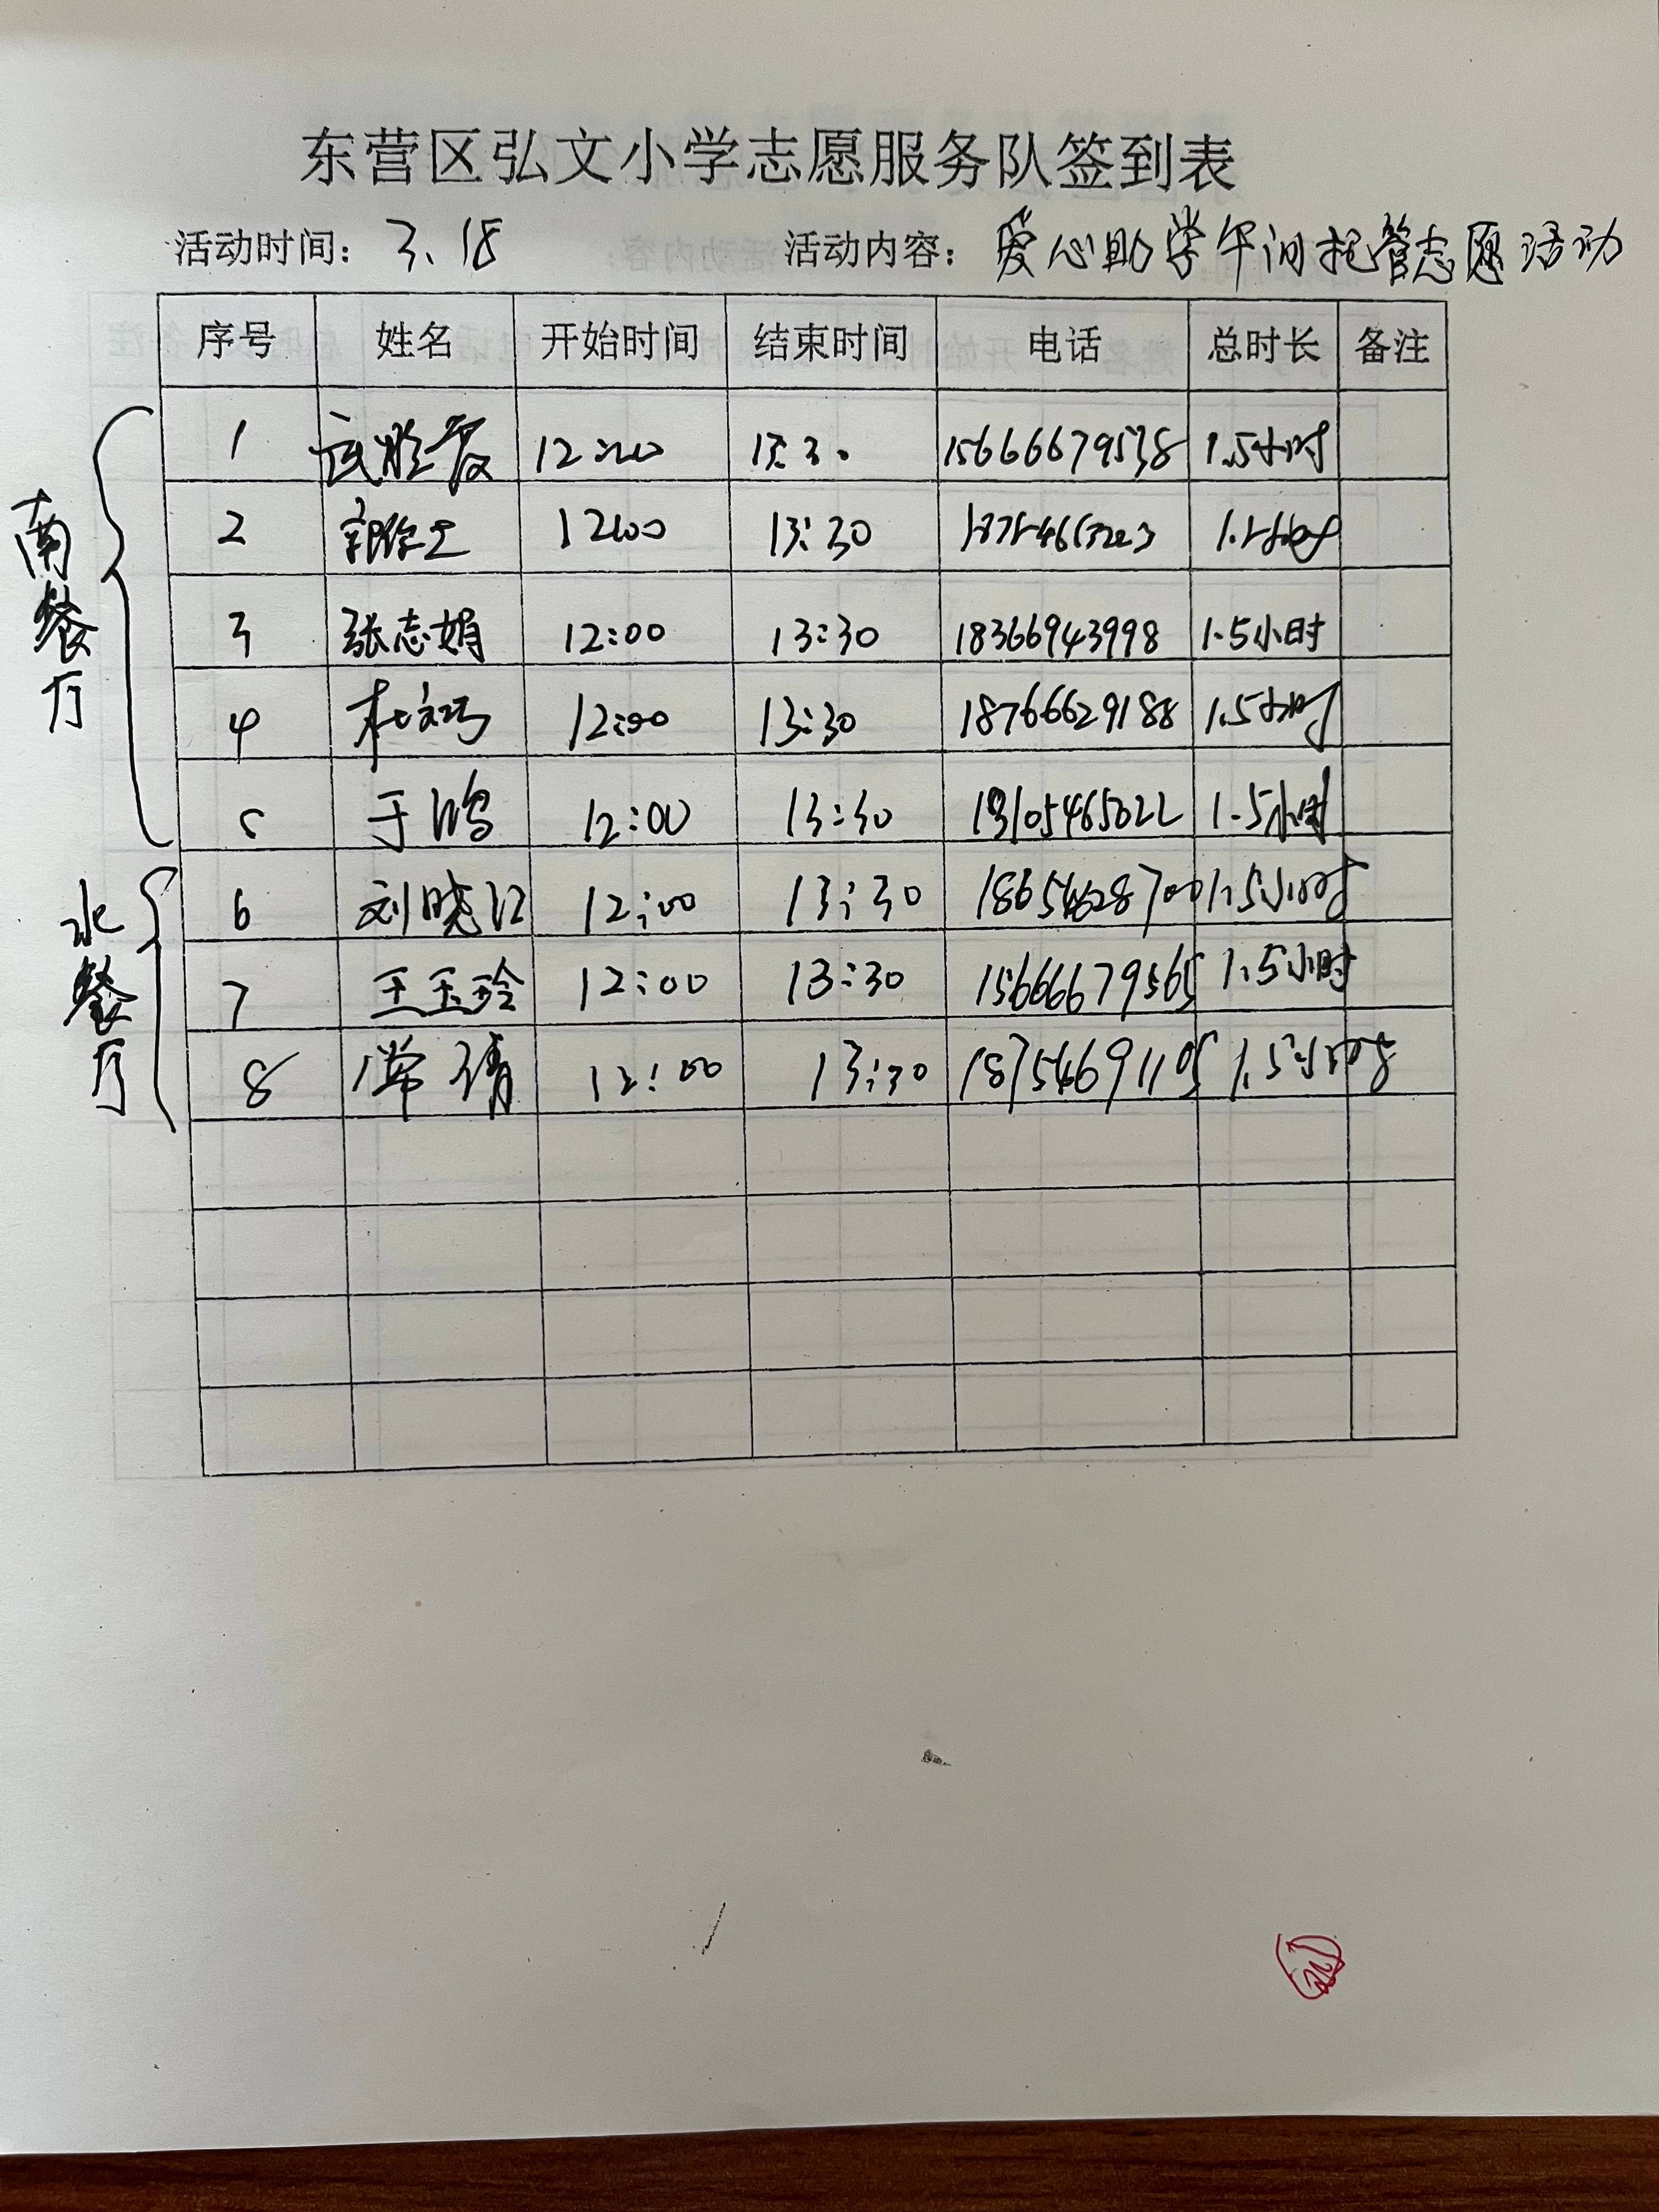 东营区弘文小学志愿服务队签到表
活动时间: 3、18 活动内容: 爱心助学午间托管志愿活动
序号 姓名 开始时间 结束时间 电话 总时长 备注
南餐厅
1 12:00 13:30 15666679538 1.5小时
2 12:00 13:30 1.5小时
3 张志娟 12:00 13:30 18366943998 1.5小时
4 杜 12:00 13:30 18766629188 1.5小时
5 于鸿 12:00 13:30 1.5小时
北餐厅
6 刘晓江 12:00 13:30 18654628700 1.5小时
7 王玉玲 12:00 13:30 15666679565 1.5小时
8 常倩 12:00 13:30 18754691105 1.5小时